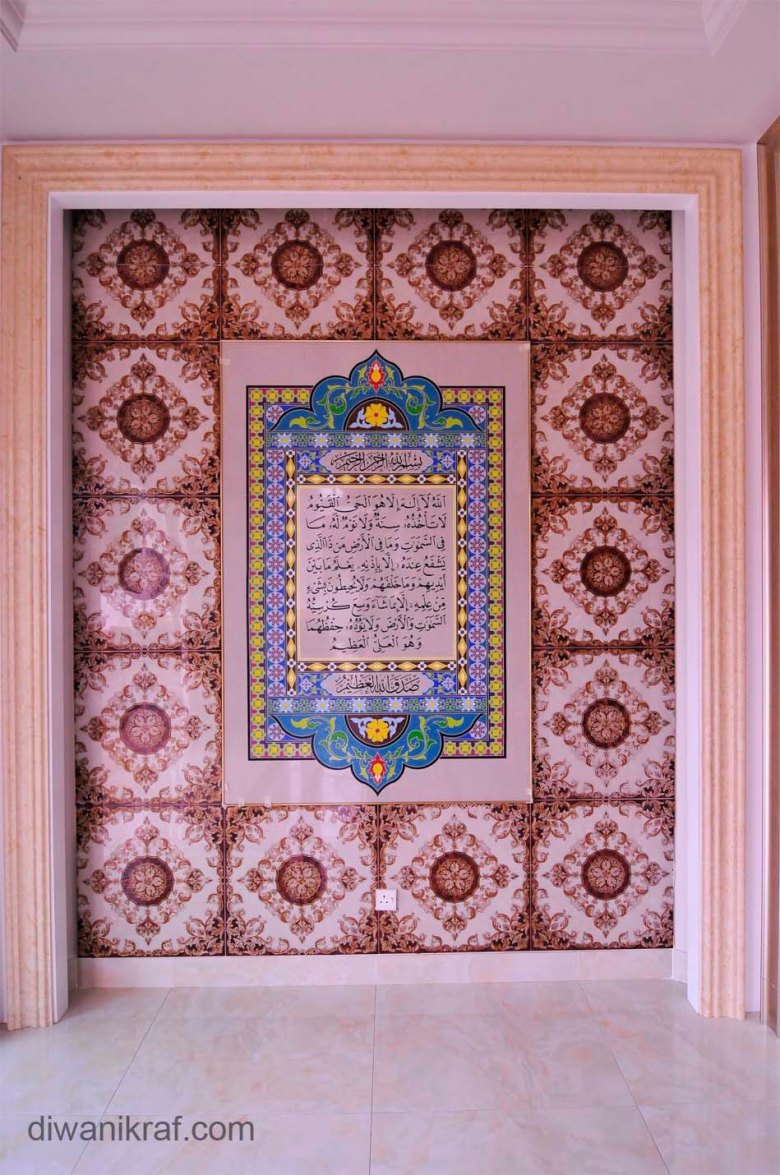 بِسْمِ اللهِ الرَّحْمٰنِ الرَّحِيْمِ
اَللهُ لَآ اِلٰهَ اِلَّا هُوَ الْحَيُّ الْقَيُّوْمُ
لَا تَأْخُذُهُ، سِنَةٌ وَلَا نَوْمٌ لَهُ، مَا
فِى السَّمٰوَتِ وَمَا فِى الْأَرْضِ مَن ذَا الَّذِى
يَشْفَعُ عِندَهُ، إِلَّا بِإِذْنِهِ، يَعْلَمُ مَا بَيْنَ
أَيْدِيهِمْ وَمَا خَلْفَهُمْ وَلَا يُحِيطُونَ بِشَىْءٍ
مِّنْ عِلْمِهِ، إِلَّا بِمَا شَاءَ وَسِعَ كُرْسِيُّهُ
السَّمٰوَتِ وَالْأَرْضَ وَلَا يَؤُدُهُ، حِفْظُهُمَا
وَهُوَ الْعَلِىُّ الْعَظِيْمُ
صَدَقَ اللهُ الْعَظِيْمُ
diwanikraf.com